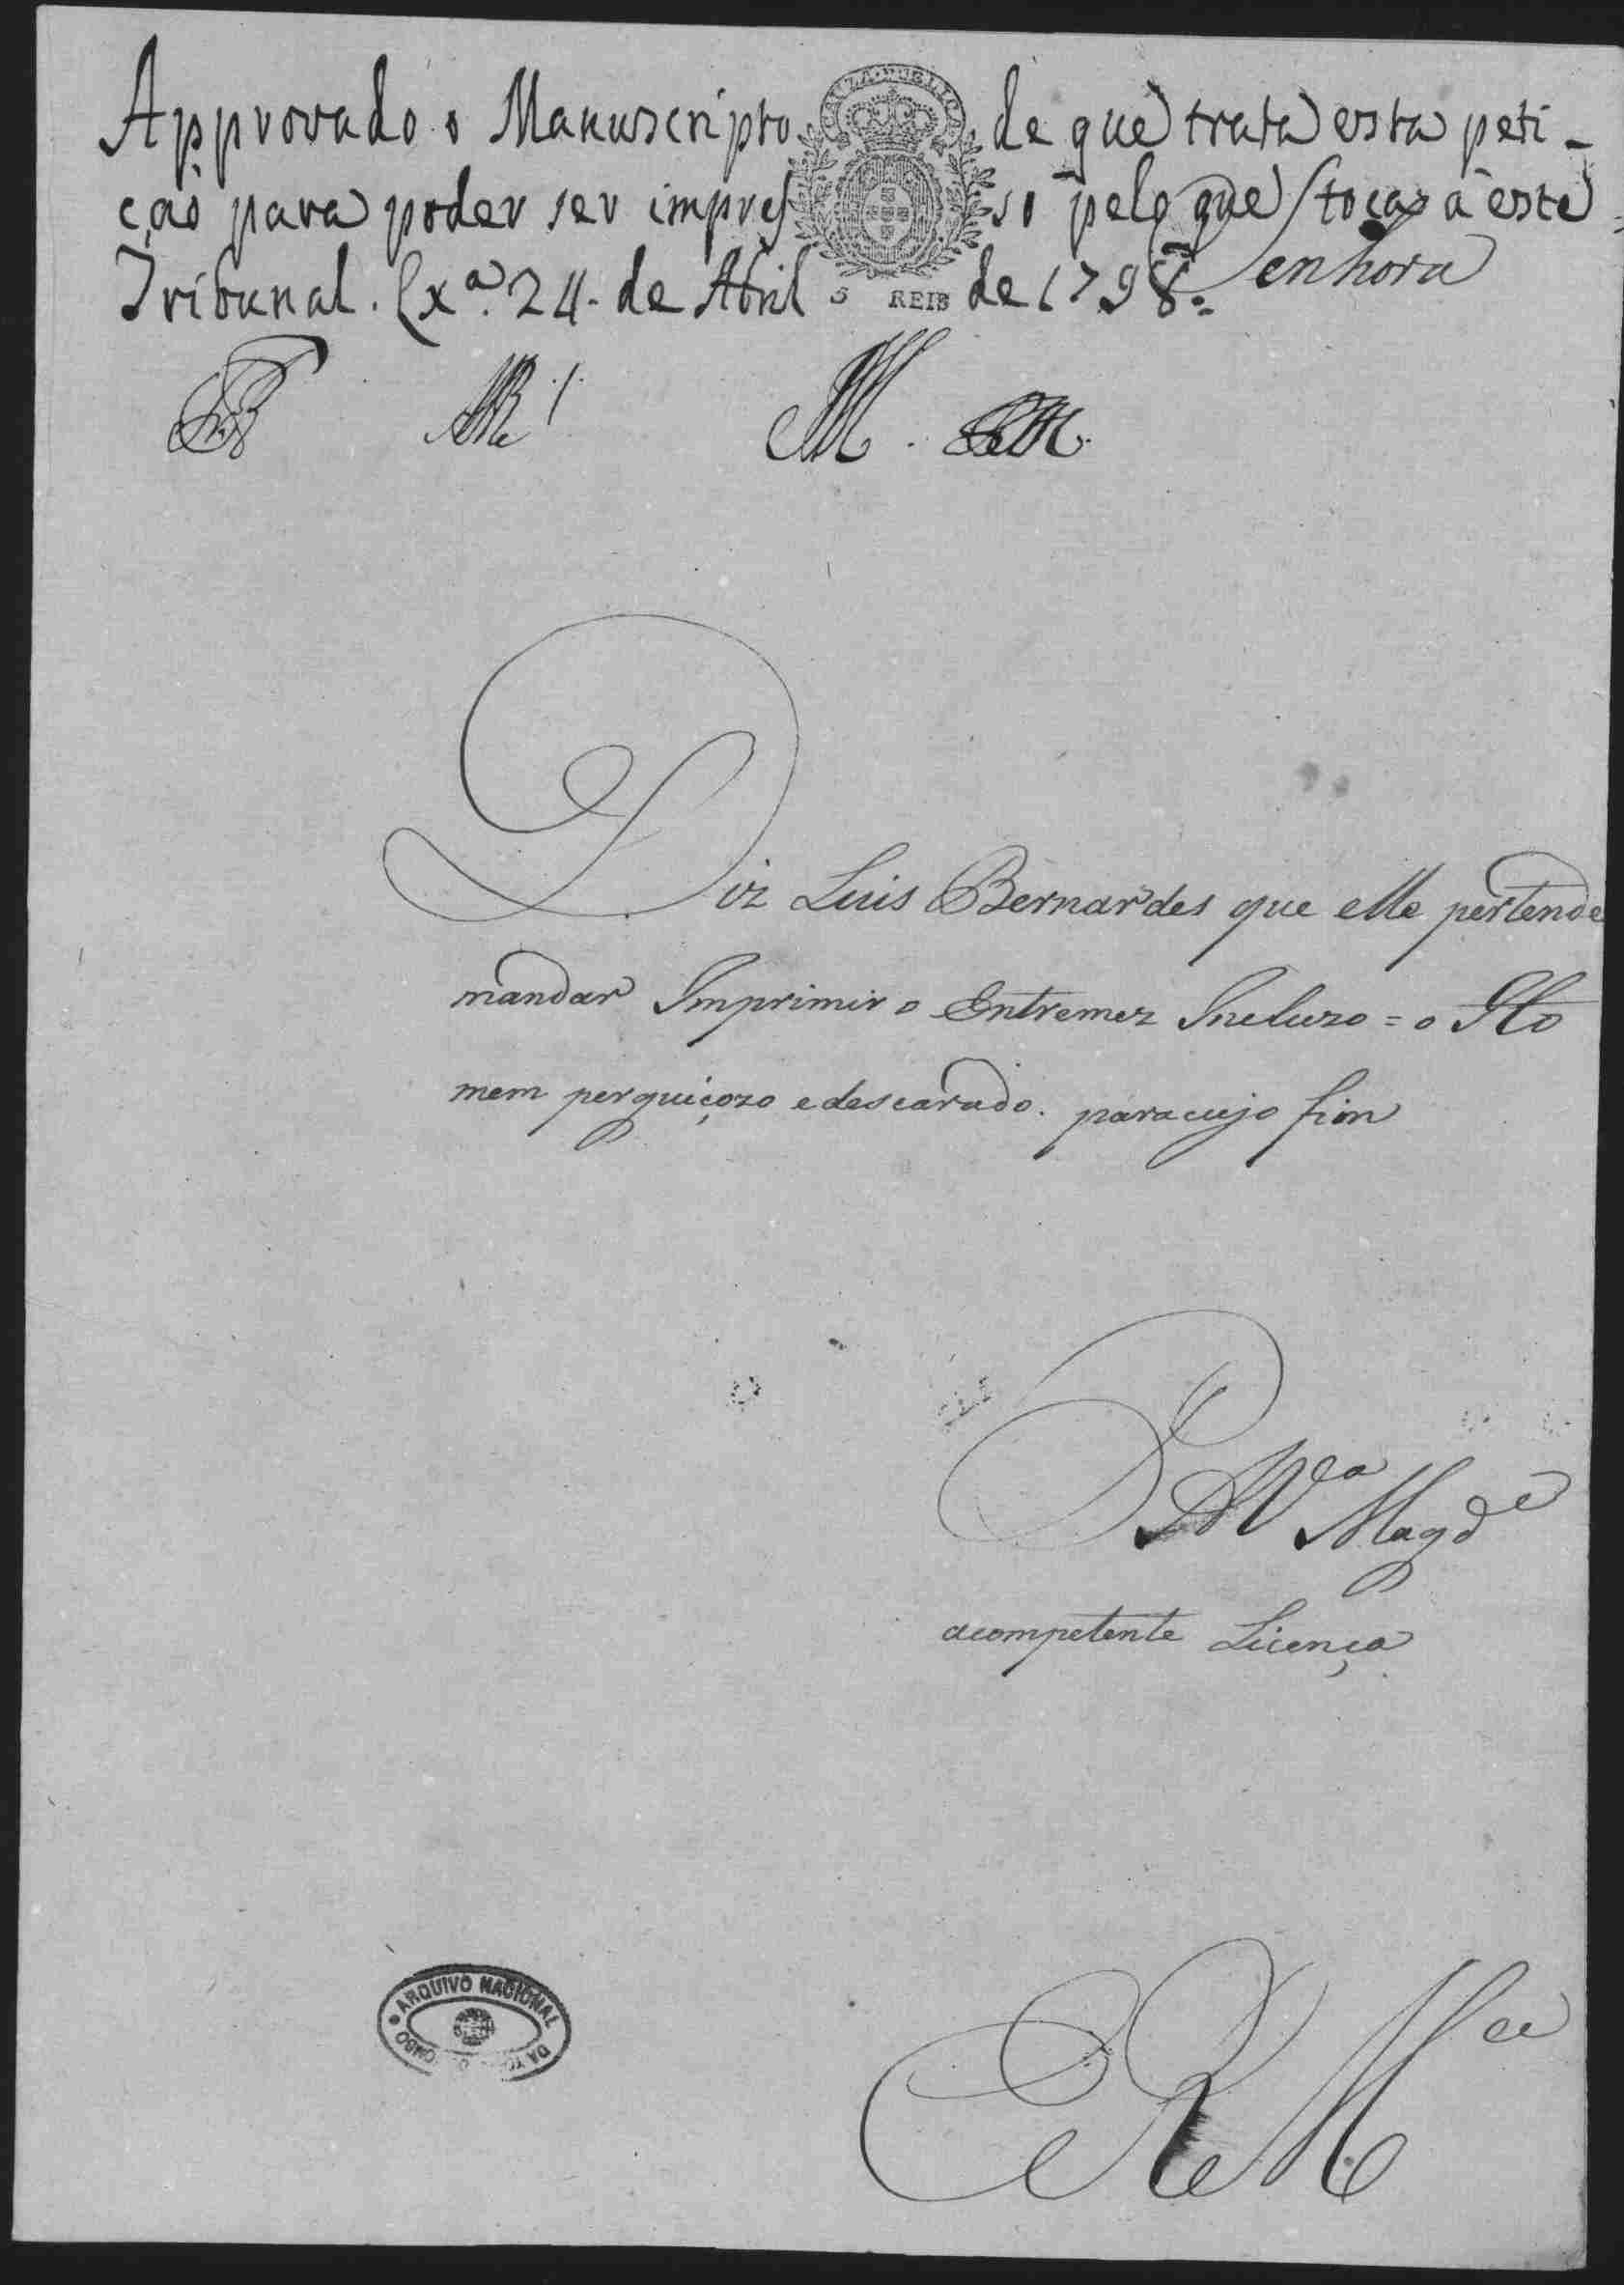 Approvado o Manuscripto de que trata esta peti-
çaõ para poder ser impresso pelo que toca a este
Tribunal. Lxª. 24. de Abril de 1798.
CAUZA PUBLICA
5 REIS
Senhora
Diz Luis Bernardes que elle pertende
mandar Imprimir o Entremez Incluzo = o Ho
mem perguiçozo e descarado. para cujo fim
P. a Vª Magde
a competente Licença
ARQUIVO NACIONAL DA TO OMBO
E R Mce